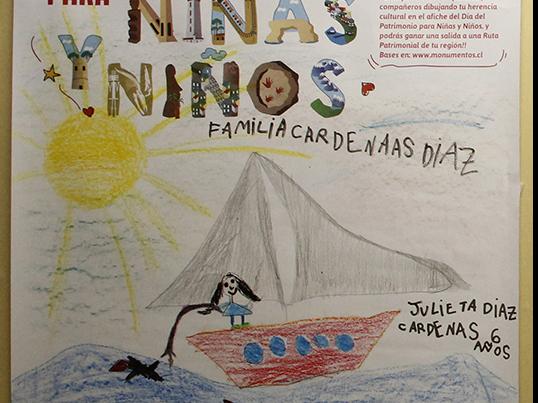 PARA
NIÑAS
Y NIÑOS
compañeros dibujando tu herencia
cultural en el afiche del Día del
Patrimonio para Niñas y Niños, y
podrás ganar una salida a una Ruta
Patrimonial de tu región!!
Bases en: www.monumentos.cl
FAMILIA CARDENAAS DIAZ
JULIETA DIAZ
CARDENAS 6
AÑOS